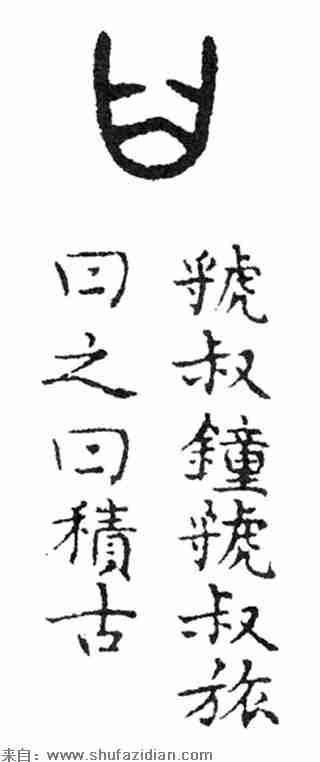 虢叔鐘虢叔旅
曰之曰積古
来自：www.shufazidian.com